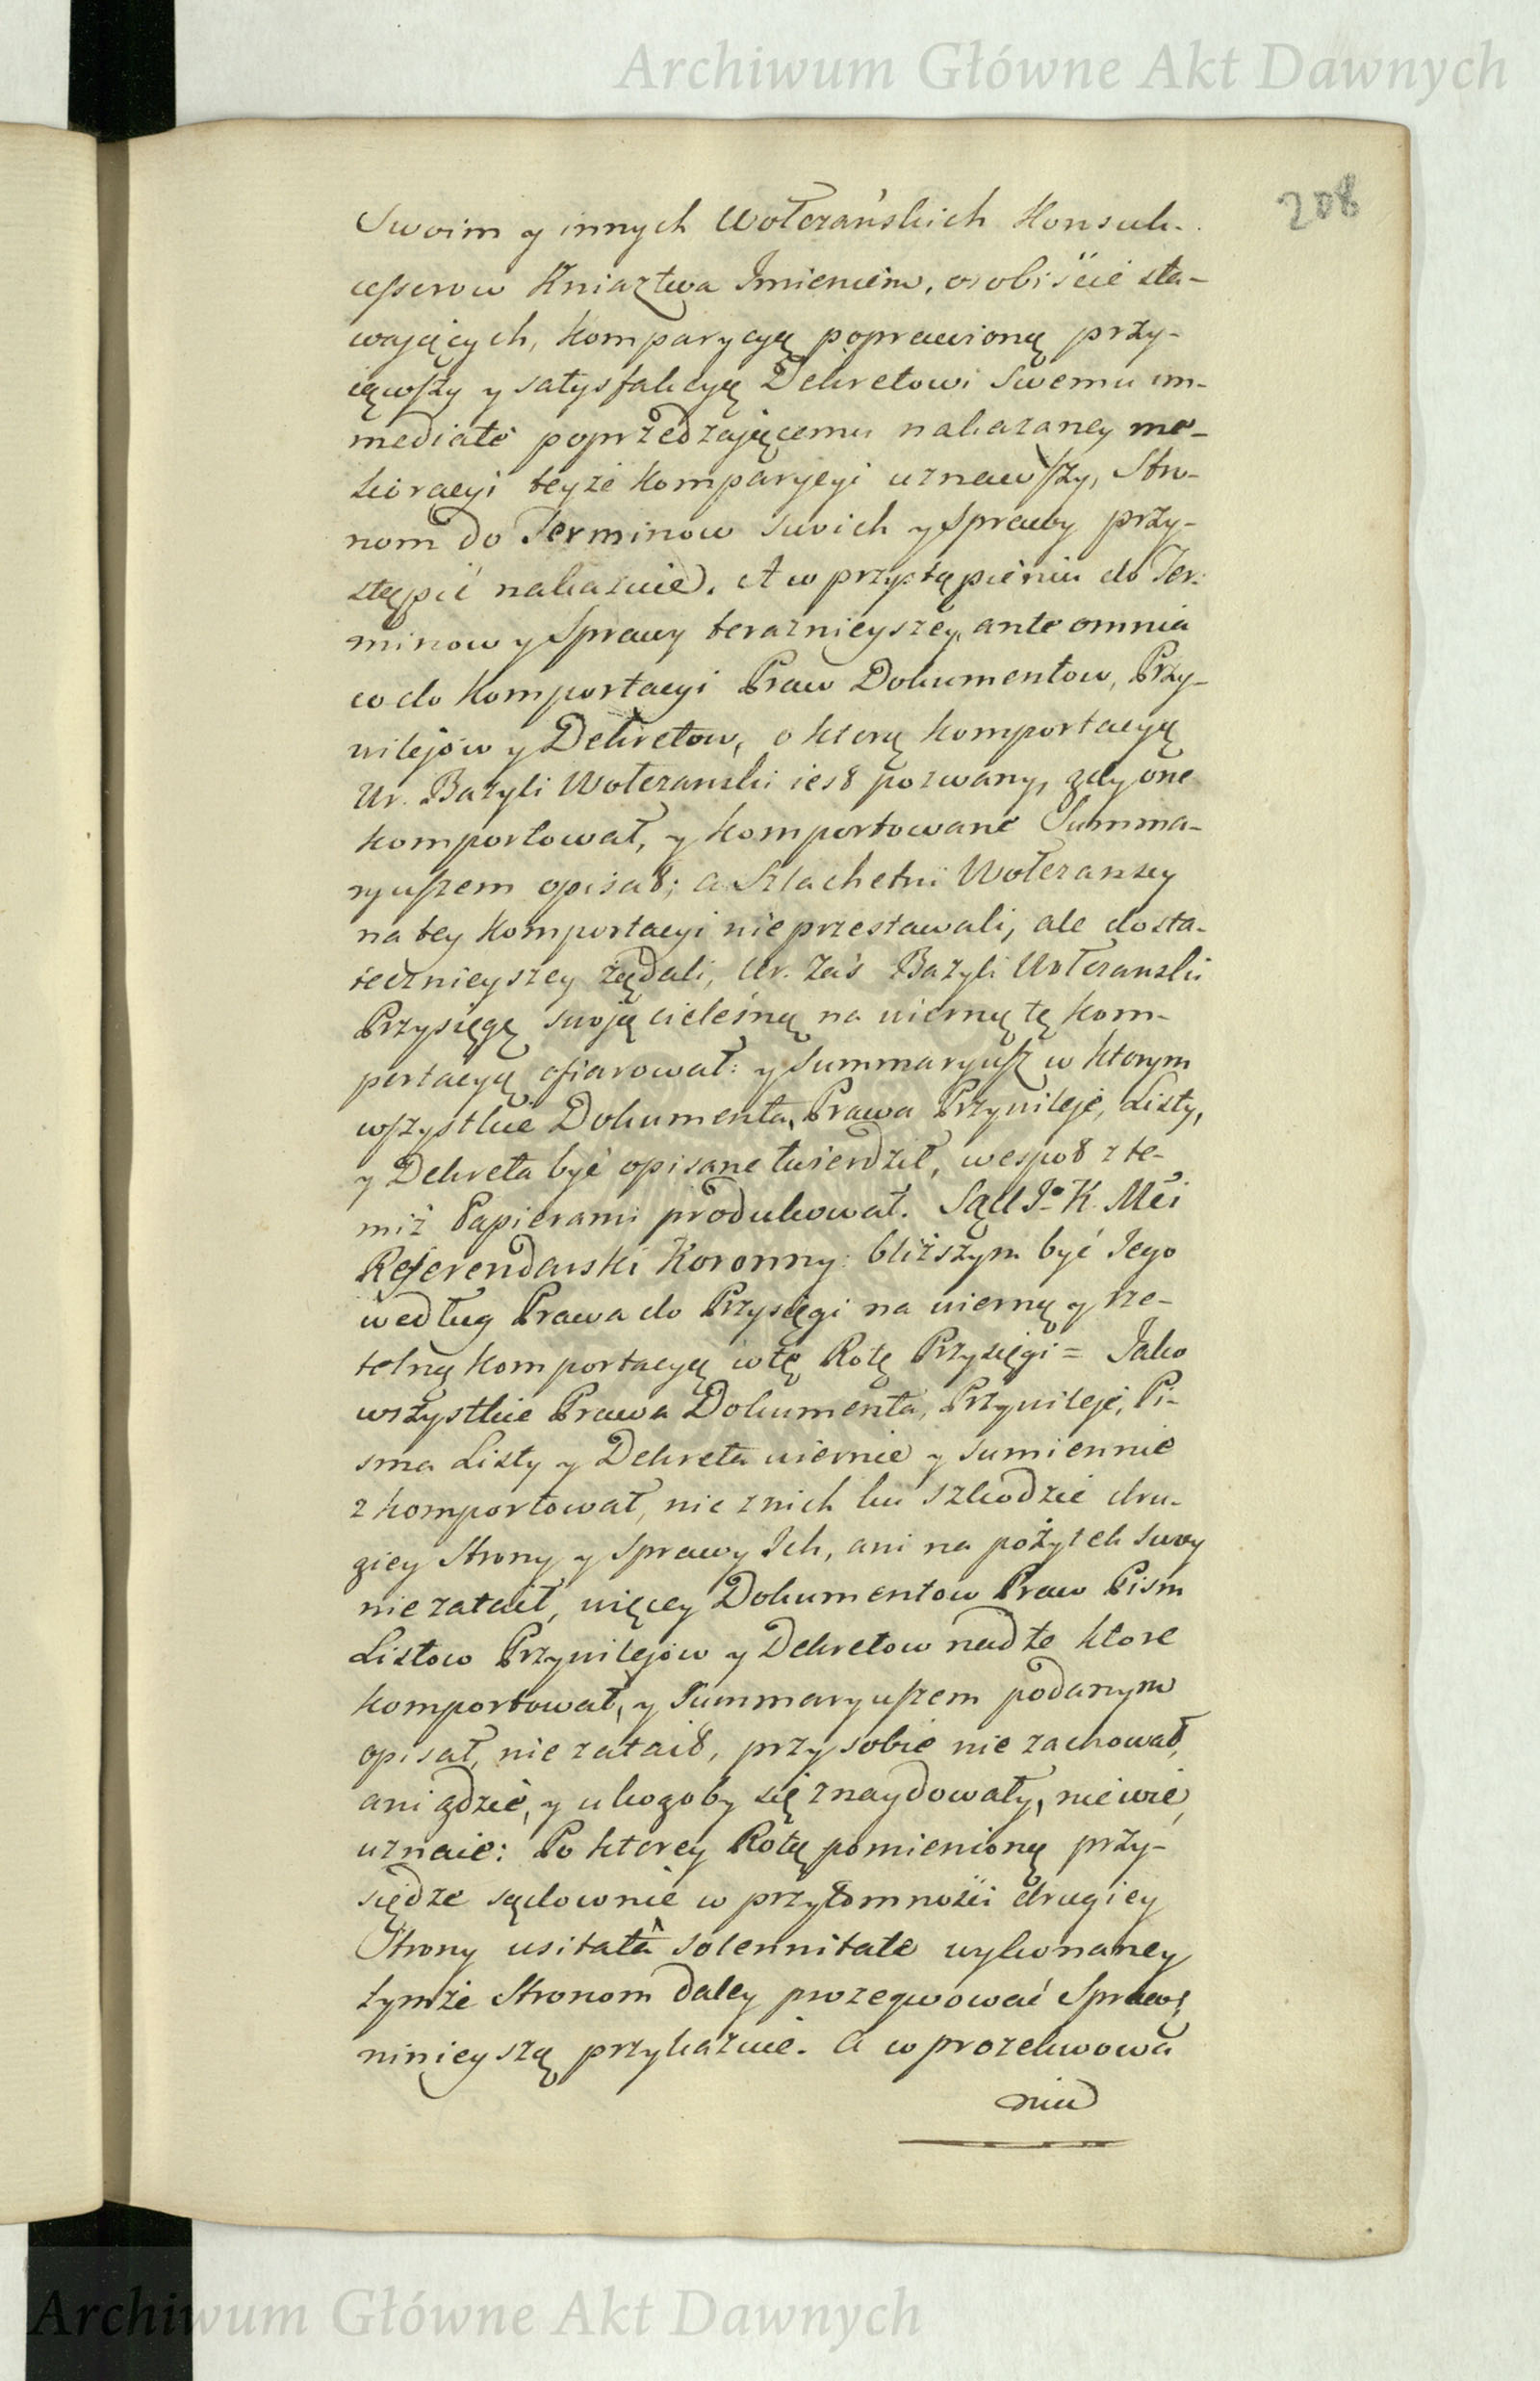 Archiwum Główne Akt Dawnych
208
Swoim y innych Wołczańskich Konsuk-
cessorow Kniaztwa Imieniem, osobiście sta-
wających, komparycyą poprawioną przy-
iąwszy y satysfakcyą Dekretowi swemu im-
mediate poprzedzającemu nakazaney me-
lioracyi teyże komparycyi uznawszy, Stro-
nom do Terminow swoich y Sprawy przy-
stąpić nakazuie. A w przystąpieniu do Ter-
minow y Sprawy teraznieyszey, ante omnia
co do komportacyi Praw Dokumentow, Przy-
wilejow y Dekretow, o ktorą komportacyą
Ur. Bazyli Wołczanski iest pozwany, gdy one
komportował, y komportowane Summa-
ryuszem opisał; a Szlachetni Wołczanscy
na tey komportacyi nie przestawali, ale dosta-
tecznieyszey żądali, Ur. Zaś Bazyli Wołczanski
Przysięgę swoją cieleśną na wierną tę kom-
portacyą ofiarował: y Summaryusz w ktorym
wszystkie Dokumenta, Prawa Przywileje, Listy,
y Dekreta być opisane twierdził, wespoł z te-
miż Papierami produkował. Sąd Jo K. Mci
Referendarski Koronny: bliższym być Jego
według Prawa do Przysięgi na wierną y rze-
telną komportacyą w tę Rotę Przysięgi = Jako
wszystkie Prawa Dokumenta, Przywileje, Pi-
sma Listy y Dekreta wiernie y sumiennie
zkomportował, nic z nich ku szkodzie dru-
giey Strony y Sprawy Ich, ani na pożytek swoy
nie zataił, więcey Dokumentow Praw Pism
Listow Przywilejow y Dekretow nad te ktore
komportował, y Summaryuszem podanym
opisał, nie zataił, przy sobie nie zachował,
ani gdzie, y u kogoby się znaydowały, nie wie,
uznaie: Po ktorey Rotę pomienioną przy-
siędze sądownie w przytomności drugiey
Strony usitatâ solennitate wykonaney
tymże Stronom daley prozeqwować Sprawę
ninieyszą przykazuie. A w prozekwowa
niu
Archiwum Główne Akt Dawnych